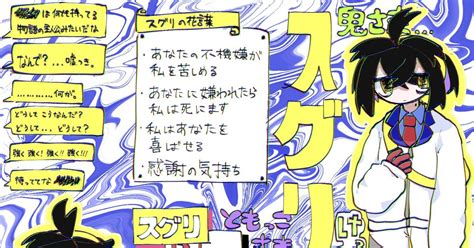 は何でも持ってる
物語の主人公みたいだな
なんで?...嘘つき。
............何が。
どうしてこうなんだ?
どうして... どうして?
強く!強く!!強く!!!
待っててな
スグリの花言葉
・あなたの不機嫌が
私を苦しめる
・あなたに嫌われたら
私は死にます
・私はあなたを
喜ばせる
・感謝の気持ち
鬼さま...
スグリ
スグリ
ともっこ